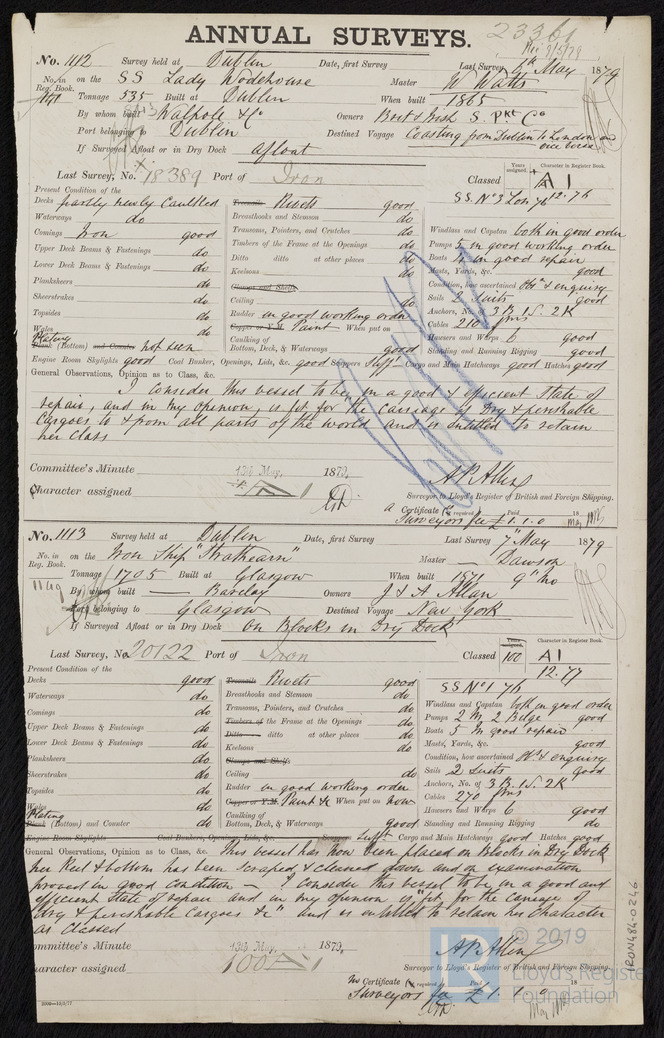 ANNUAL SURVEYS.
23361
No. 1112 Survey held at Dublin Date, first Survey Last Survey 6th May 1879
No. in Reg. Book. on the SS Lady Wodehouse Master W Watts
Tonnage 535 Built at Dublin When built 1865
By whom built Walpole & Co Owners Brit & Irish S. Pkt Co
Port belonging to Dublin Destined Voyage Coasting from Dublin to London or vice versa
If Surveyed Afloat or in Dry Dock afloat
Last Survey, No. 18389 Port of Iron Classed Years assigned. Character in Register Book. A 1
SS. No 3 Lon 76 12.76
Present Condition of the
Decks partly newly caulked Treenails Rivets good
Waterways do Breasthooks and Stemson do Windlass and Capstan both in good order
Comings Iron good Transoms, Pointers, and Crutches do Pumps 5 in good working order
Upper Deck Beams & Fastenings do Timbers of the Frame at the Openings do Boats 4 in good repair
Lower Deck Beams & Fastenings do Ditto ditto at other places do Masts, Yards, &c. good
Plansheers do Keelsons do Condition, how ascertained & enquiry
Sheerstrakes do Clamps and Shelfs Sails 2 Suits good
Topsides do Ceiling do Anchors, No. of 3 B. 1 S. 2 K
Wales do Rudder in good working order Cables 210 fms
Plating Plank (Bottom) and Counter not seen Copper or Y.M. Paint When put on Hawsers and Warps 6 good
Caulking of Bottom, Deck, & Waterways good Standing and Running Rigging good
Engine Room Skylights good Coal Bunker, Openings, Lids, &c. good Scuppers Suff Cargo and Main Hatchways good Hatches good
General Observations, Opinion as to Class, &c.
I consider this vessel to be in a good & efficient State of
repair, and in my opinion, is fit for the Carriage of Dry & perishable
Cargoes to & from all parts of the world and is entitled to retain
her class
Committee's Minute 13th May, 1879.
Character assigned A 1
A P Allen
Surveyor to Lloyd's Register of British and Foreign Shipping.
a Certificate (if required) Paid 18
Surveyors fee £1.1.0
No. 1113 Survey held at Dublin Date, first Survey Last Survey 7 May 1879
No. in Reg. Book. on the Iron Ship "Strathearn" Master Dawson
Tonnage 1705 Built at Glasgow When built 1871 9th Mo
By whom built Barclay Owners J & A Allan
Port belonging to Glasgow Destined Voyage New York
If Surveyed Afloat or in Dry Dock On Blocks in Dry Dock
Last Survey, No. 20122 Port of Iron Classed Years assigned. 100 Character in Register Book. A 1
SS No 1 76 12.77
Present Condition of the
Decks good Treenails Rivets good
Waterways do Breasthooks and Stemson do Windlass and Capstan both in good order
Comings do Transoms, Pointers, and Crutches do Pumps 2 M, 2 Bilge good
Upper Deck Beams & Fastenings do Timbers of the Frame at the Openings do Boats 5 in good repair
Lower Deck Beams & Fastenings do Ditto ditto at other places do Masts, Yards, &c. good
Plansheers do Keelsons do Condition, how ascertained & enquiry
Sheerstrakes do Clamps and Shelfs Sails 2 Suits good
Topsides do Ceiling do Anchors, No. of 3 B. 1 S. 2 K
Wales do Rudder in good working order Cables 270 fms
Plating Plank (Bottom) and Counter do Copper or Y.M. Paint &c When put on now Hawsers and Warps 6 good
Caulking of Bottom, Deck, & Waterways good Standing and Running Rigging do
Engine Room Skylights Coal Bunker, Openings, Lids, &c. Scuppers Suff Cargo and Main Hatchways good Hatches good
General Observations, Opinion as to Class, &c. This vessel has now been placed on Blocks in Dry Dock
her Keel & bottom has been scraped & cleaned down and on examination
proved in good condition — I consider this vessel to be in a good and
efficient State of repair and in my opinion is "fit for the Carriage of
dry & perishable Cargoes &c" and is entitled to retain her Character
as Classed
Committee's Minute 13th May, 1879.
Character assigned 100 A 1
A P Allen
Surveyor to Lloyd's Register of British and Foreign Shipping.
No Certificate (if required) Paid 18
Surveyors fee £1.1.0
2000—13/2/77
IRON484-0246
LR © 2019
Lloyd's Register
Foundation